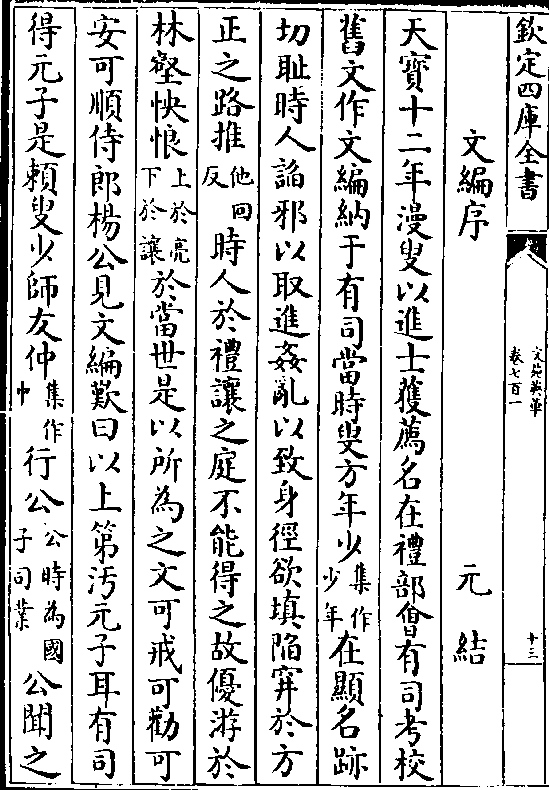 欽定四庫全書
文苑英華
卷七百一
十三
文編序 元結
天寶十二年漫叟以進士獲薦名在禮部㑹有司考校
舊文作文編納于有司當時叟方年少集作少年在顯名跡
切恥時人諂邪以取進姦亂以致身徑欲填陷穽於方
正之路推他回反時人於禮讓之庭不能得之故優游於
林壑怏恨上於亮下於讓於當世是以所為之文可戒可勸可
安可順侍郎楊公見文編歎曰以上第汚元子耳有司
得元子是賴叟少師友仲集作中行公公時為國子司業公聞之